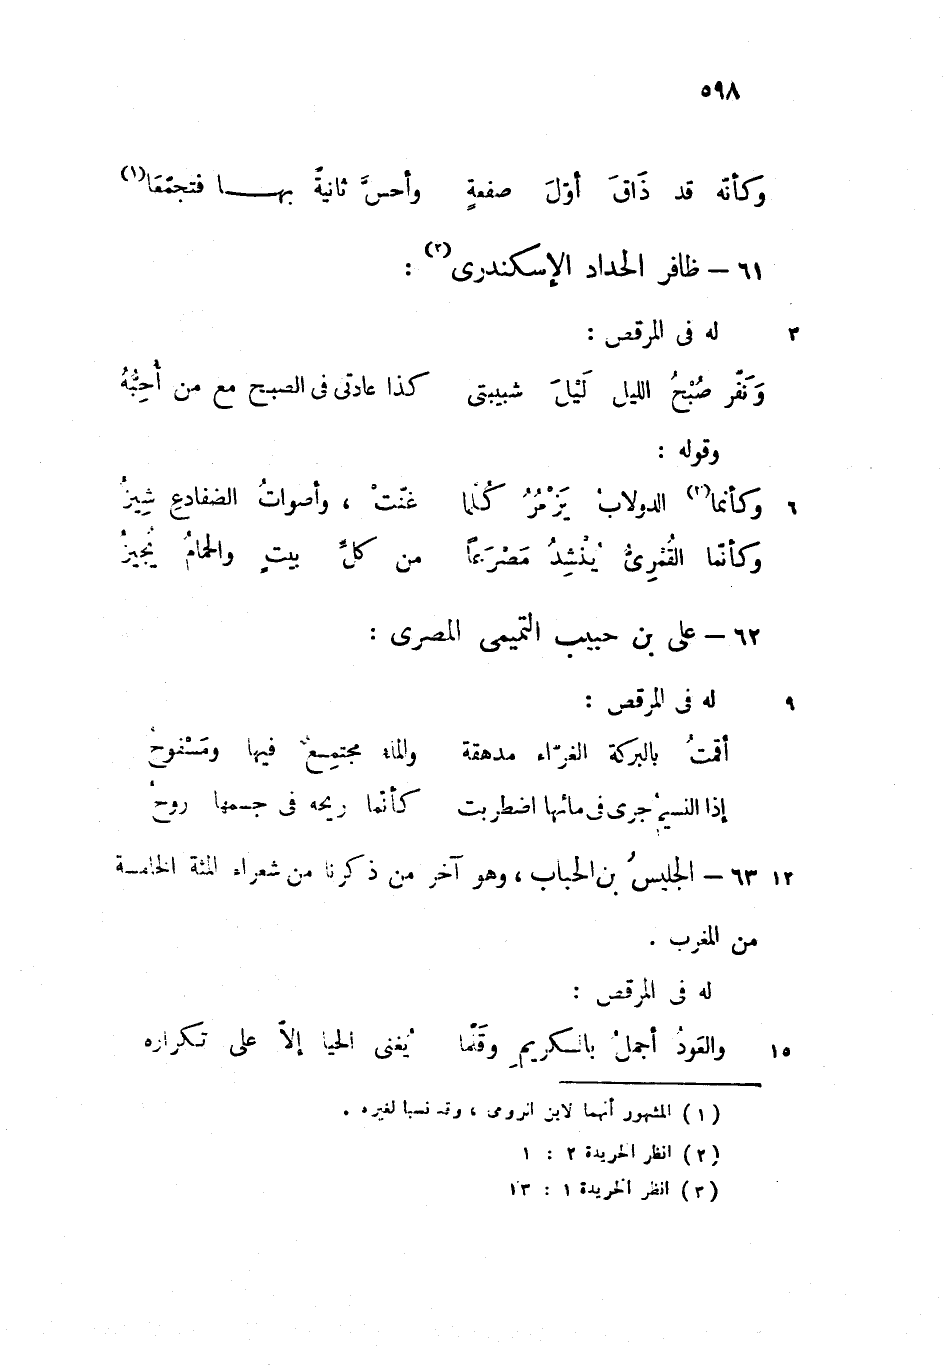 ٥٩٨
وكأنّه قد ذَاقَ أوّلَ صفعةٍ وأحسَّ ثانيةً بهــا فتجمّعَا(١)
٦١ – ظافر الحداد الإسكندرى(٢) :
٣ له فى المرقص :
وَنَفّر صُبْحُ الليل لَيْلَ شبيبتى كذا عادتى فى الصبح مع من أُحِبُّهُ
وقوله :
٦ وكأنما(٣) الدولابُ يَزْمُرُ كُلما غنّتْ ، وأصواتُ الضفادعِ شِيزُ
وكأنّما القُمْرِىُّ يُنْشِدُ مَصْرَعاً من كلِّ بيتٍ والحمامُ يُجيزُ
٦٢ – على بن حبيب التميمى المصرى :
٩ له فى المرقص :
أقمتُ بالبركة الغرّاء مدهقة والماء مجتمِعٌ فيها ومَسْفوحُ
إذا النسيمُ جرى فى مائها اضطربت كأنّما ريحه فى جسمها روحُ
١٢ ٦٣ – الجليسُ بن الحباب ، وهو آخر من ذكرنا من شعراء المئة الخامسة
من المغرب .
له فى المرقص :
١٥ والعَودُ أجملُ بالكريمِ وقَلّما يُغنى الحيا إلاّ على تكراره
(١) المشهور أنهما لابن الرومى ، وقد نسبا لغيره .
(٢) انظر الخريدة ٢ : ١
(٣) انظر الخريدة ١ : ١٣